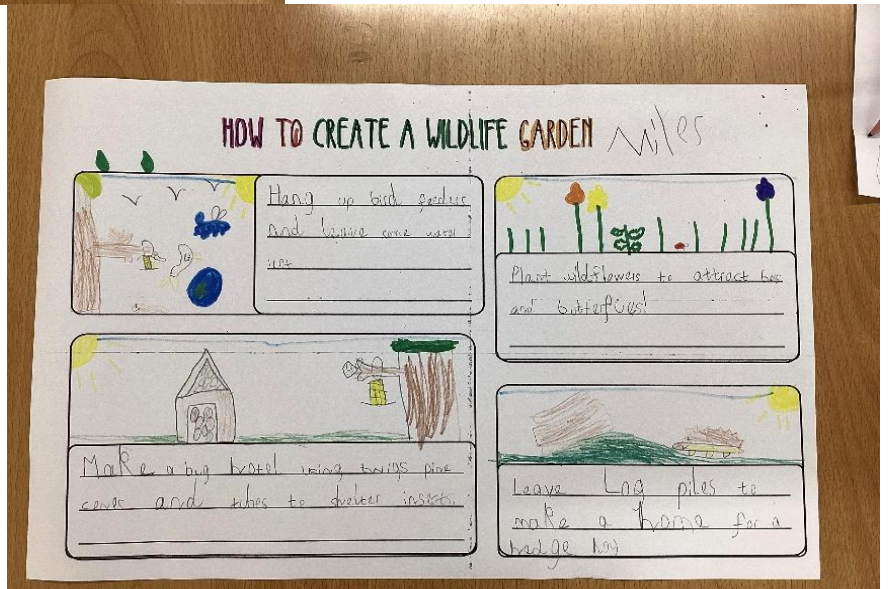 HOW TO CREATE A WILDLIFE GARDEN Miles
Hang up bird feeders
and some water
Plant wildflowers to attract bees
and butterflies!
Make a bug hotel using twigs pine
cones and tubes to shelter insects.
Leave Log piles to
make a home for a
hedge hog